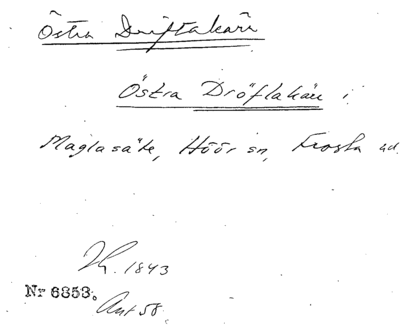 Östra Driftakärr
Östra Dröflakärr i
Maglasäte, Höör sn, Frosta hd.
1843
Nr 6353.
Ant 58.